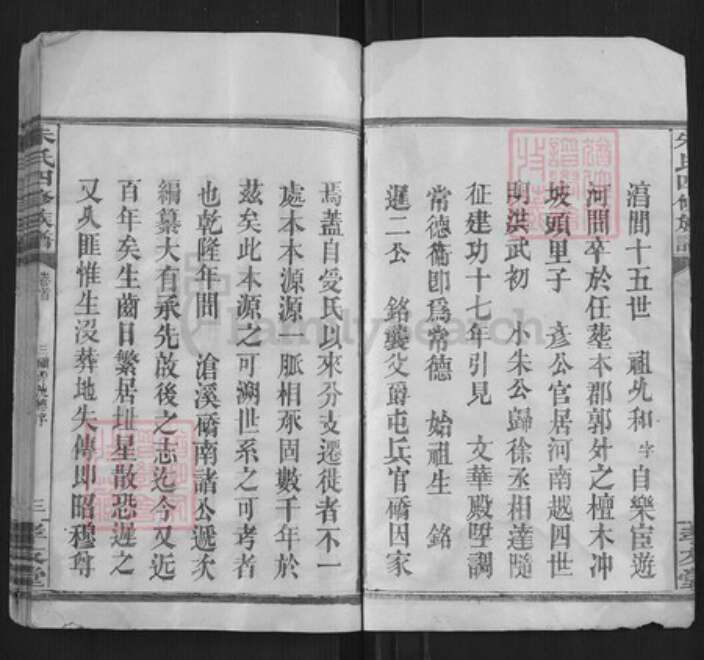 朱氏四修族譜
滀間十五世 祖允和字自樂宦遊
河間卒於任塟本郡郭外之檀木冲
坡頭里子 彥公官居河南越四世
明洪武初 小朱公歸徐丞相達隨
征建功十七年引見 文華殿墍調
常德衛即爲常德 始祖生 銘
暹二公 銘襲父爵屯兵官礄因家
焉蓋自受氏以來分支遷徙者不一
處木本源源一脈相承固數千年於
茲矣此木源之可溯世系之可考者
也乾隆年間 滄溪礄南諸公遞次
編纂大有承先啟後之志迄今又近
百年矣生齒日繁居址星散恐遲之
又久匪惟生没葬地失傳即昭穆尊
朱氏四修族譜
卷首
三
孝友堂
FamilySearch